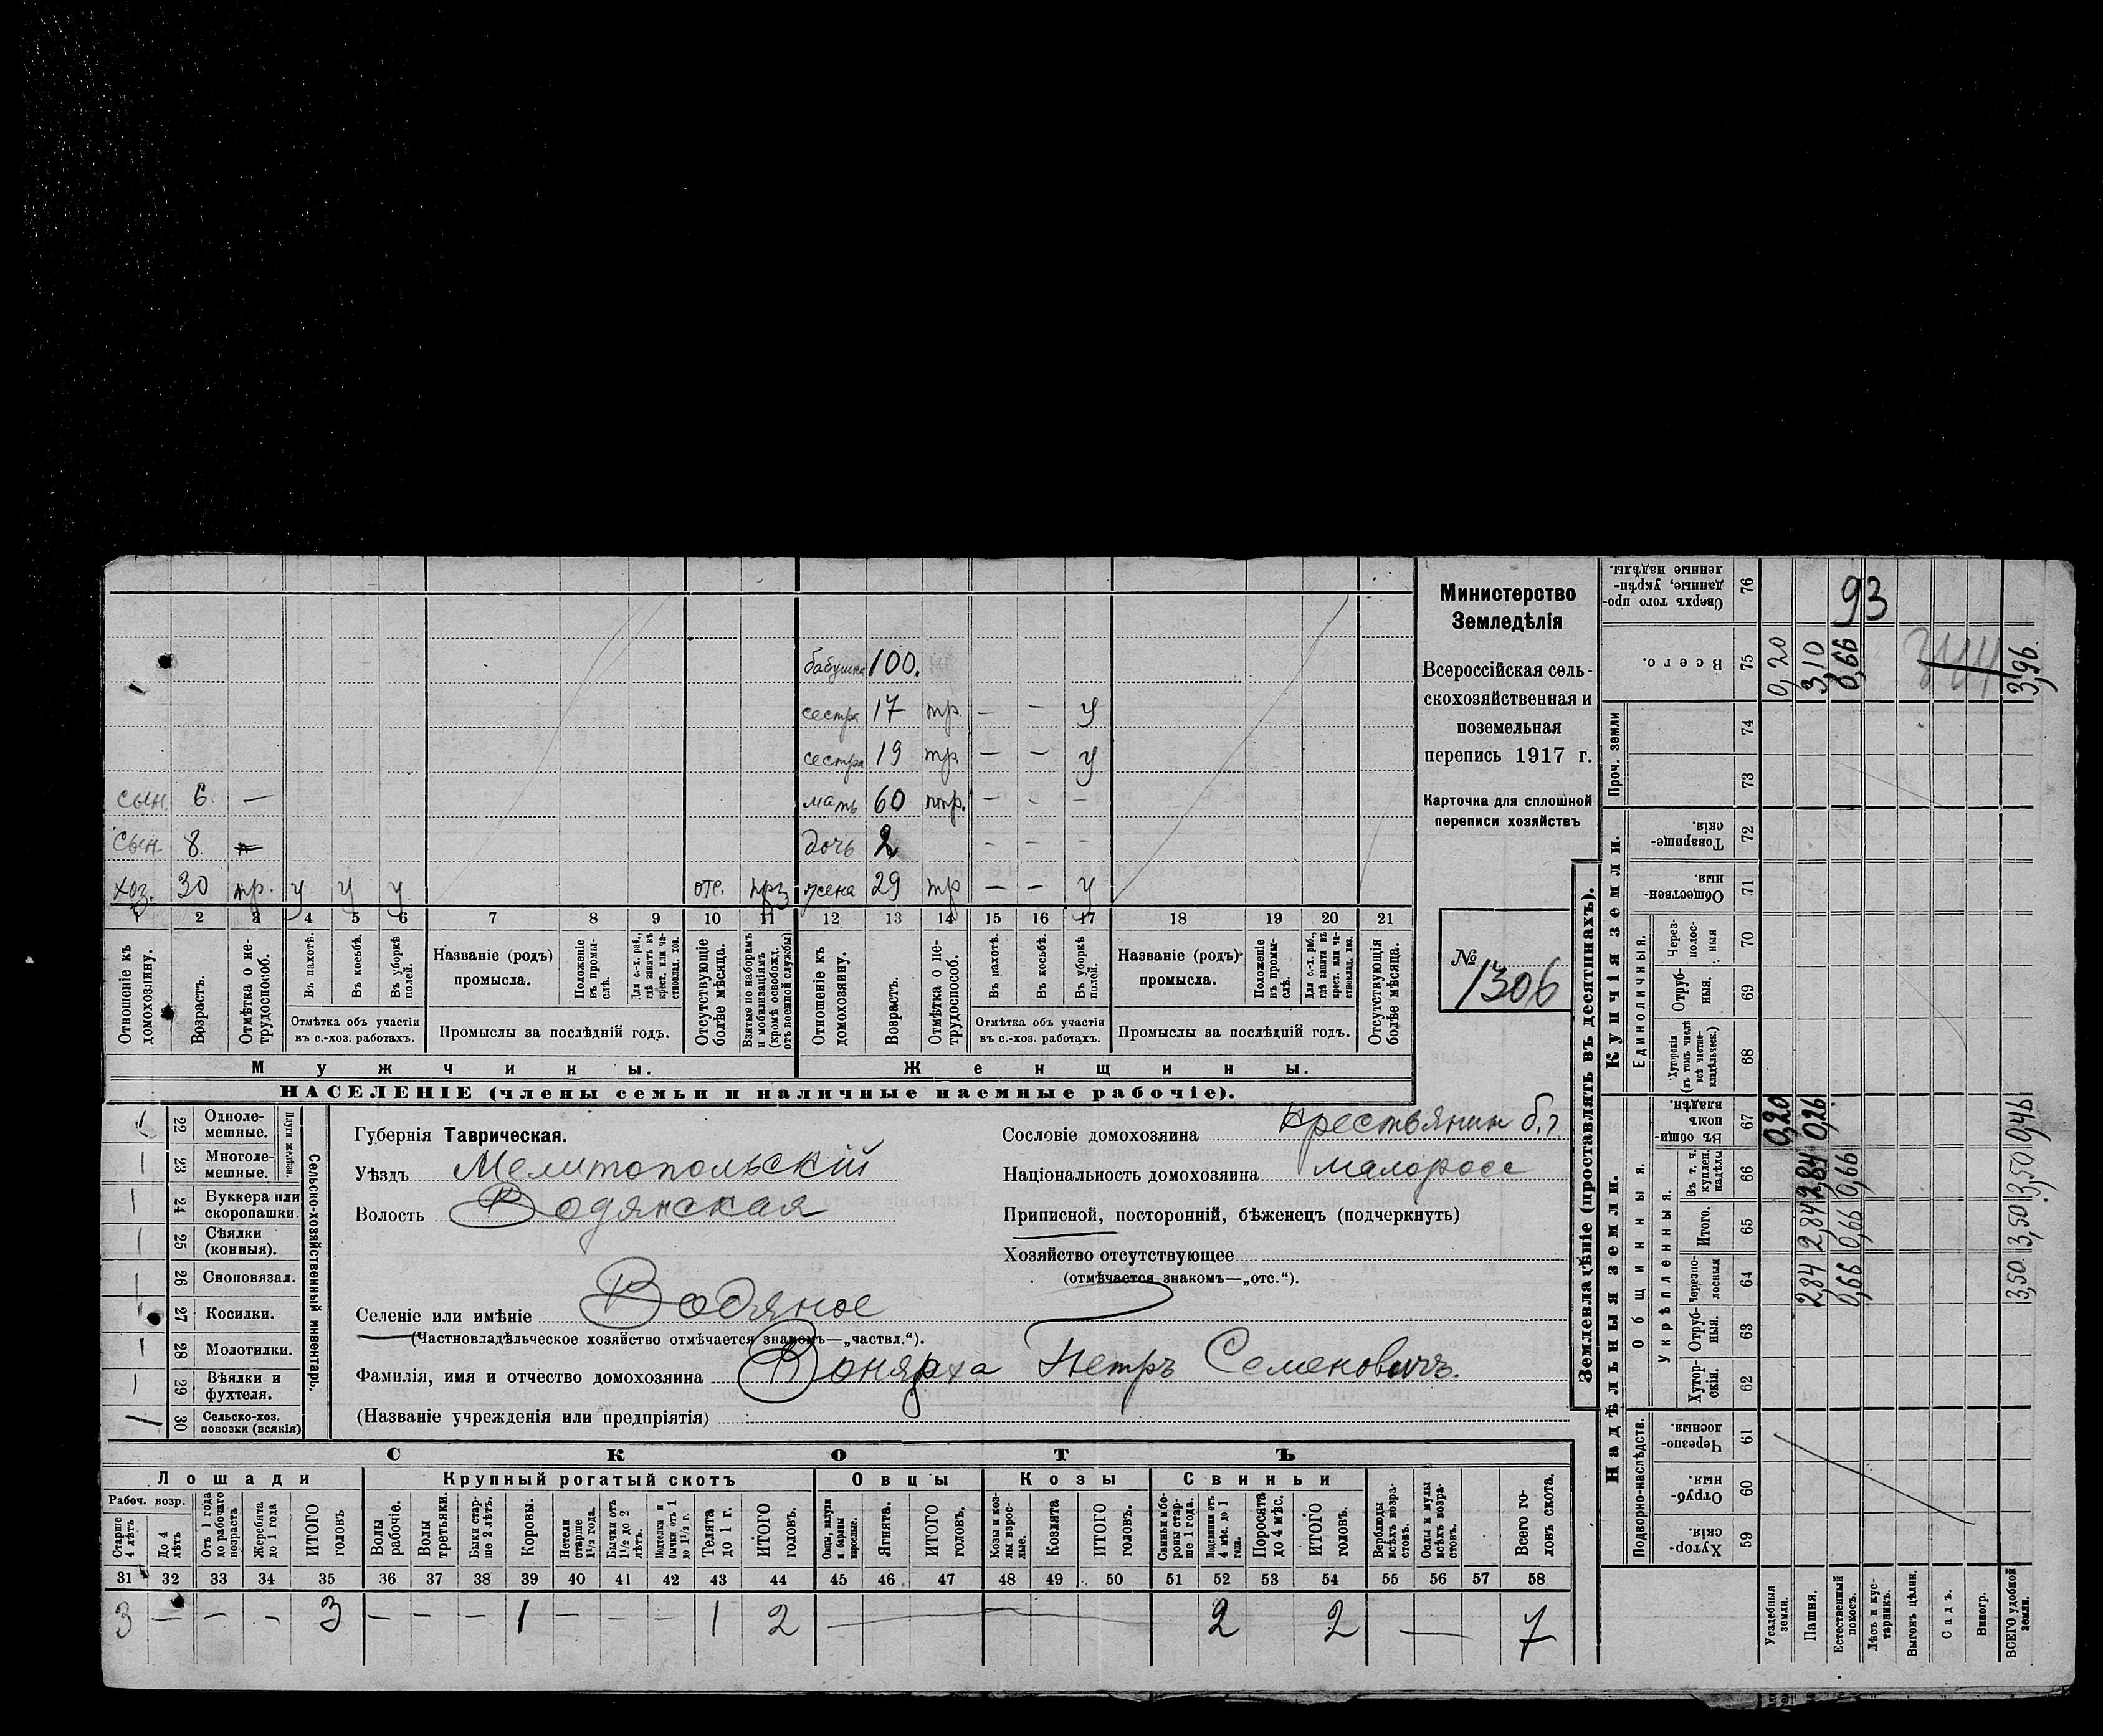 бабушка 100.
сестра 17 тр. — — у
сестра 19 тр — — у
сын. 6 — мать 60 нтр. — - -
сын 8 дочь 2 - - -
хоз. 30 тр. у у у отс. жена 29 тр — — у
1 2 3 4 5 6 7 8 9 10 11 12 13 14 15 16 17 18 19 20 21
Отношеніе къ домохозяину.
Возрастъ.
Отмѣтка о нетрудоспособ.
Въ пахотѣ.
Въ косьбѣ.
Въ уборкѣ полей.
Отмѣтка объ участіи
въ с.-хоз. работахъ.
Названіе (родъ)
промысла.
Положеніе въ промыслѣ.
Для с.-х. раб., гдѣ занятъ въ крест. или частновлад. хоз.
Промыслы за послѣдній годъ.
Отсутствующіе болѣе мѣсяца.
Взятые по наборамъ и мобилизаціямъ (кромѣ освобожд. отъ военной службы)
Отношеніе къ домохозяину.
Возрастъ.
Отмѣтка о нетрудоспособ.
Въ пахотѣ.
Въ косьбѣ.
Въ уборкѣ полей.
Отмѣтка объ участіи
въ с.-хоз. работахъ.
Названіе (родъ)
промысла.
Положеніе въ промыслѣ.
Для с.-х. раб., гдѣ занята въ крест. или частновлад. хоз.
Промыслы за послѣдній годъ.
Отсутствующія болѣе мѣсяца.
Мужчины. Женщины.
НАСЕЛЕНІЕ (члены семьи и наличные наемные рабочіе).
Министерство
Земледѣлія
Всероссійская сель-
скохозяйственная и
поземельная
перепись 1917 г.
Карточка для сплошной
переписи хозяйствъ
№ 1306
Сельско-хозяйственный инвентарь.
Плуги желѣзн.
1 22 Одноле-
мешные.
1 23 Многоле-
мешные.
1 24 Буккера или
скоропашки.
1 25 Сѣялки
(конныя).
1 26 Сноповязал.
1 27 Косилки.
1 28 Молотилки.
1 29 Вѣялки и
фухтеля.
1 30 Сельско-хоз.
повозки (всякія)
Губернія Таврическая.
Уѣздъ Мелитопольскій
Волость Водянская
Селеніе или имѣніе Водяное
(Частновладѣльческое хозяйство отмѣчается знакомъ—„частвл.“).
Фамилія, имя и отчество домохозяина Вонярха Петръ Семеновичъ.
(Названіе учрежденія или предпріятія)
Сословіе домохозяина крестьянин
Національность домохозяина малоросс
Приписной, посторонній, бѣженец (подчеркнуть)
Хозяйство отсутствующее
(отмѣчается знакомъ—„отс.“).
СКОТЪ
Лошади Крупный рогатый скотъ Овцы Козы Свиньи
Рабоч. возр.
Старше 4 лѣтъ
До 4 лѣтъ
Отъ 1 года до рабочаго возраста
Жеребята до 1 года
ИТОГО головъ
Волы рабочіе.
Волы третьяки.
Быки старше 2 лѣтъ.
Коровы.
Нетели старше 1½ года.
Бычки отъ 1½ до 2 лѣтъ.
Подтелки и бычки отъ 1 до 1½ г.
Телята до 1 г.
ИТОГО головъ.
Овцы, валухи и бараны взрослые.
Ягнята.
ИТОГО головъ.
Козы и козлы взрослые.
Козлята
ИТОГО головъ.
Свиньи и боровы старше 1 года.
Подсвинки отъ 4 мѣс. до 1 года.
Поросята до 4 мѣс.
ИТОГО головъ.
Верблюды всѣхъ возрастовъ.
Ослы и мулы всѣхъ возрастовъ.
Всего головъ скота.
31 32 33 34 35 36 37 38 39 40 41 42 43 44 45 46 47 48 49 50 51 52 53 54 55 56 57 58
3 — — - 3 — - - - 1 — - - 1 2 — 2 2 — 7
Землевладѣніе (проставлять въ десятинахъ).
Надѣльныя земли. Купчія земли. Проч. земли
Подворно-наслѣдств. Общинныя. Единоличныя.
Укрѣпленныя.
Хуторскія 59
Отрубныя. 60
Черезполосныя 61
Хуторскія. 62
Отрубныя. 63
Черезполосныя 64
Итого. 65
Въ т. ч. куплен. надѣлы 66
Въ общинномъ владѣн. 67
Хуторскія (въ томъ числѣ всѣ частновладѣльческ.) 68
Отрубныя. 69
Черезполосныя 70
Общественныя. 71
Товарищескія. 72
73
74
Всего. 75
Сверхъ того проданные, укрѣпленные надѣлы. 76
93
Усадебныя земли. 0,20 0,20
Пашня. 2,84 2,84 2,84 0,26 3,10
Естественный покосъ. 0,66 0,66 0,66 0,66
Лѣсъ и кустарникъ.
Выгонъ цѣлин.
Садъ.
Виногр.
ВСЕГО удобной земли. 3,50 3,50 3,50 0,46 3,96